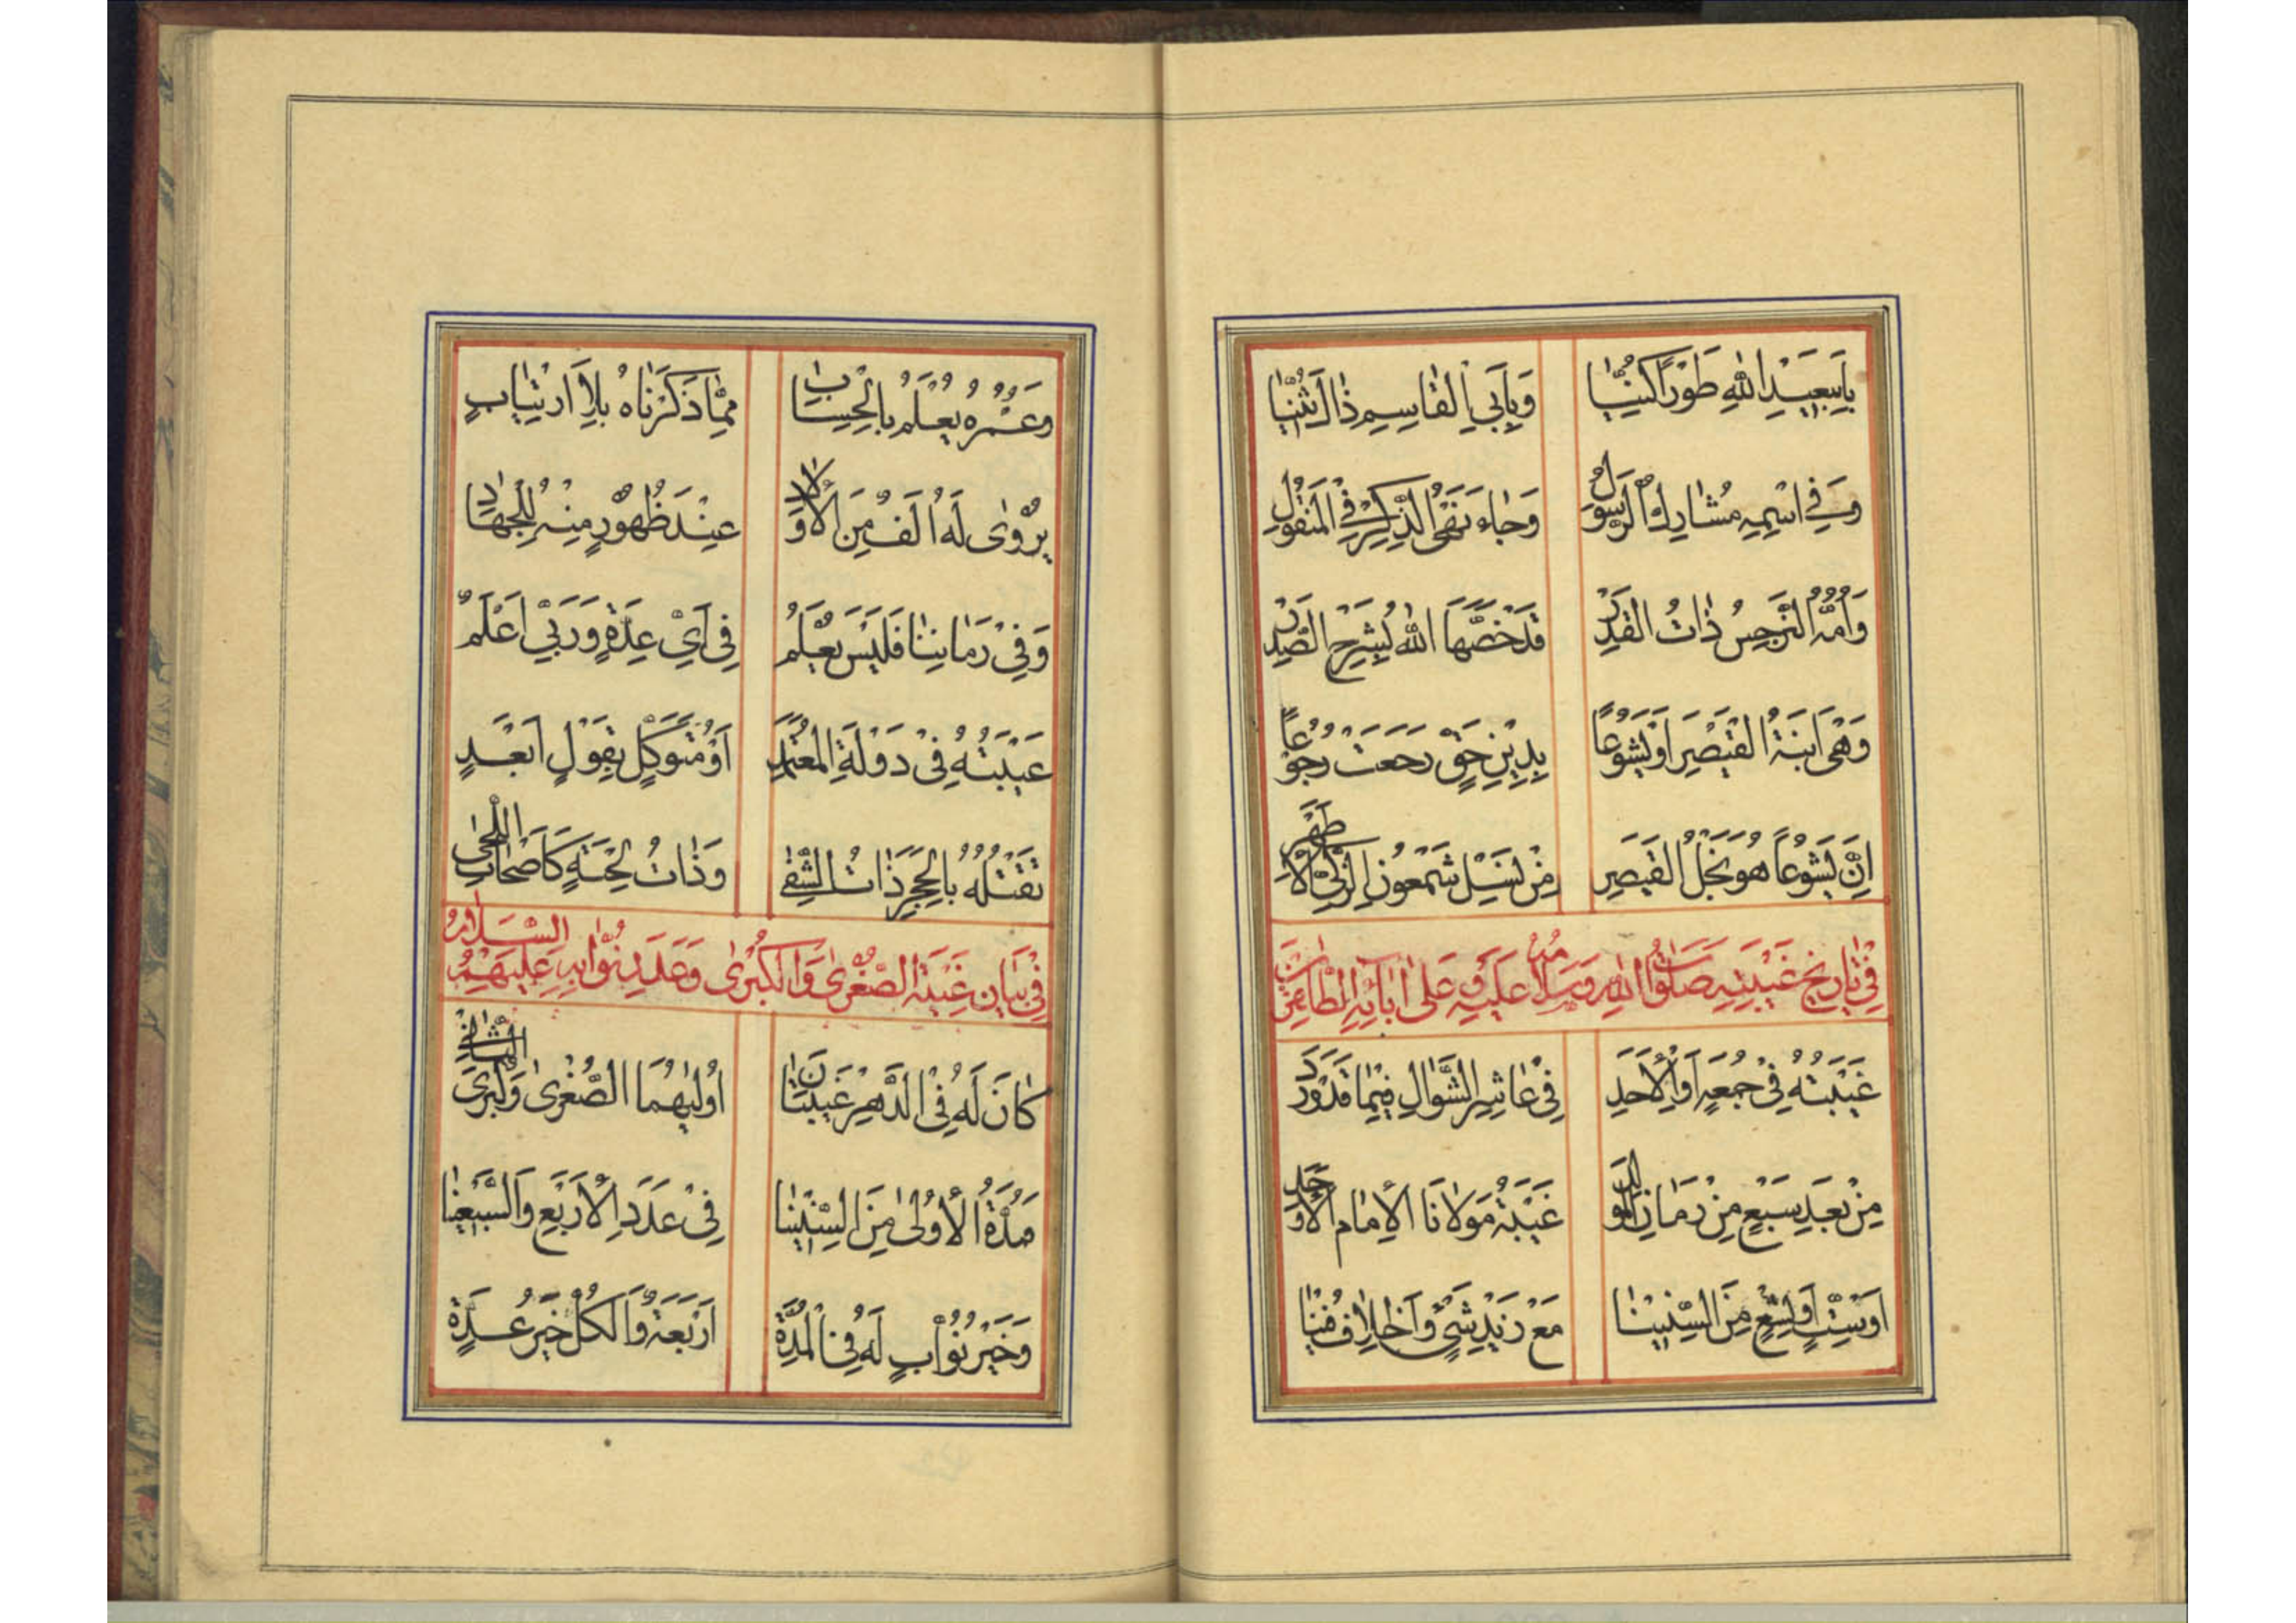 بِاَبِیعَبْدِ اللّٰهِ طَوْرًا کُنِّیٰا وَبِاَبِی الْقٰاسِمِ ذٰا لَ ثُنِّیٰا
وَفِی اسْمِهِ مُشٰارِكُ الرَّسُولِ وَجٰاءَ نَهْیُ الذِّکْرِ فِی الْمَنْقُولِ
وَاُمُّهُ النَّرْجِسُ ذٰاتُ الْقَدْرِ قَدْ خَصَّهَا اللّٰهُ لِشَرْحِ الصَّدْرِ
وَهْیَ ابْنَةُ الْقَیْصَرِ اَوْ یَشُوعًا بِدِیْنِ حَقٍّ رَجَعَتْ رُجُوعًا
اِنَّ یَشُوعًا هُوَ نَجْلُ الْقَیْصَرِ مِنْ نَسْلِ شَمْعُونِ الزَّکِیِّ الْاَطْهَرِ
فِی تٰارِیخِ غَیْبَتِهِ صَلَوٰاتُ اللّٰهِ وَسَلٰامُهُ عَلَیْهِ وَعَلیٰ اٰبٰائِهِ الطّٰاهِرِیْنَ
غَیْبَتُهُ فِی جُمُعَةٍ اَوِ الْاَحَدِ فِی عٰاشِرِ الشَّوّٰالِ فِیْمٰا قَدْ وَرَدَ
مِنْ بَعْدِ سَبْعٍ مِنْ زَمٰانِ الْمَوْلِدِ غَیْبَةُ مَوْلَانَا الْاِمٰامِ الْاَوْحَدِ
اَوْ سِتٍّ اَوْ تِسْعٍ مِنَ السِّنِیْنٰا مَعْ زَیْدِ شَیْءٍ وَاخْتِلٰافٍ فِیْنٰا
وَعُمْرُهُ یُعْلَمُ بِالْحِسٰابِ مِمّٰا ذَکَرْنٰاهُ بِلَا ارْتِیٰابٍ
یُرْوٰی لَهُ اَلْفٌ مِنَ الْاَوْلٰادِ عِنْدَ ظُهُورٍ مِنْهُ لِلْجِهٰادِ
وَفِیْ زَمٰانِنٰا فَلَیْسَ یُعْلَمُ فِی اَیِّ عِدَّةٍ وَرَبِّیْ اَعْلَمُ
غَیْبَتُهُ فِیْ دَوْلَةِ الْمُعْتَمِدِ اَوْ مُتَوَکِّلٍ بِقَوْلٍ اَبْعَدٍ
تَقْتُلُهُ بِالْحَجَرِ ذٰاتُ الشَّقٰی وَذٰاتُ لِحْیَةٍ کَاَصْحٰابِ اللُّحٰی
فِیْ بَیٰانِ غَیْبَةِ الصُّغْرٰی وَالْکُبْرٰی وَعَدَدِ نُوّٰابِهِ عَلَیْهِمُ السَّلٰامُ
کٰانَ لَهُ فِی الدَّهْرِ غَیْبَتٰانِ اُوْلٰیهُمَا الصُّغْرٰی وَکُبْرَی الثّٰانِی
مُدَّةُ الْاُوْلٰی مِنَ السِّنِیْنٰا فِیْ عَدَدِ الْاَرْبَعِ وَالسَّبْعِیْنٰا
وَخَیْرُ نُوّٰابٍ لَهُ فِی الْمُدَّةِ اَرْبَعَةٌ وَالْکُلُّ خَیْرُ عُدَّةٍ